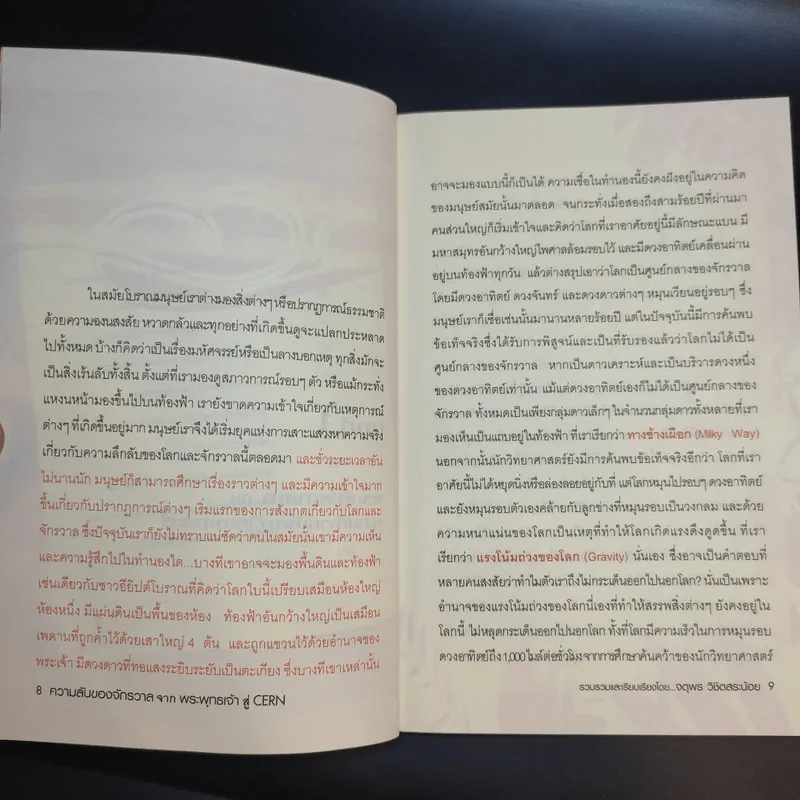 ในสมัยโบราณมนุษย์เราต่างมองสิ่งต่างๆ หรือปรากฏการณ์ธรรมชาติ
ด้วยความฉงนสงสัย หวาดกลัวและทุกอย่างที่เกิดขึ้นดูจะแปลกประหลาด
ไปทั้งหมด บ้างก็คิดว่าเป็นเรื่องมหัศจรรย์หรือเป็นลางบอกเหตุ ทุกสิ่งมักจะ
เป็นสิ่งเร้นลับทั้งสิ้น ตั้งแต่ที่เรามองดูสภาวการณ์รอบๆ ตัว หรือแม้กระทั่ง
แหงนหน้ามองขึ้นไปบนท้องฟ้า เรายังขาดความเข้าใจเกี่ยวกับเหตุการณ์
ต่างๆ ที่เกิดขึ้นอยู่มาก มนุษย์เราจึงได้เริ่มยุคแห่งการเสาะแสวงหาความจริง
เกี่ยวกับความลึกลับของโลกและจักรวาลนี้ตลอดมา และชั่วระยะเวลาอัน
ไม่นานนัก มนุษย์ก็สามารถศึกษาเรื่องราวต่างๆ และมีความเข้าใจมาก
ขึ้นเกี่ยวกับปรากฏการณ์ต่างๆ เริ่มแรกของการสังเกตเกี่ยวกับโลกและ
จักรวาล ซึ่งปัจจุบันเราก็ยังไม่ทราบแน่ชัดว่าคนในสมัยนั้นเขามีความเห็น
และความรู้สึกไปในทำนองใด...บางทีเขาอาจจะมองพื้นดินและท้องฟ้า
เช่นเดียวกับชาวอียิปต์โบราณที่คิดว่าโลกใบนี้เปรียบเสมือนห้องใหญ่
ห้องหนึ่ง มีแผ่นดินเป็นพื้นของห้อง ท้องฟ้าอันกว้างใหญ่เป็นเสมือน
เพดานที่ถูกค้ำไว้ด้วยเสาใหญ่ 4 ต้น และถูกแขวนไว้ด้วยอำนาจของ
พระเจ้า มีดวงดาวที่ทอแสงระยิบระยับเป็นตะเกียง ซึ่งบางทีเขาเหล่านั้น
8 ความลับของจักรวาล จาก พระพุทธเจ้า สู่ CERN
อาจจะมองแบบนี้ก็เป็นได้ ความเชื่อในทำนองนี้ยังคงฝังอยู่ในความคิด
ของมนุษย์สมัยนั้นมาตลอด จนกระทั่งเมื่อสองถึงสามร้อยปีที่ผ่านมา
คนส่วนใหญ่ก็เริ่มเข้าใจและคิดว่าโลกที่เราอาศัยอยู่นี้มีลักษณะแบน มี
มหาสมุทรอันกว้างใหญ่ไพศาลล้อมรอบไว้ และมีดวงอาทิตย์เคลื่อนผ่าน
อยู่บนท้องฟ้าทุกวัน แล้วต่างสรุปเอาว่าโลกเป็นศูนย์กลางของจักรวาล
โดยมีดวงอาทิตย์ ดวงจันทร์ และดวงดาวต่างๆ หมุนเวียนอยู่รอบๆ ซึ่ง
มนุษย์เราก็เชื่อเช่นนั้นมานานหลายร้อยปี แต่ในปัจจุบันนี้มีการค้นพบ
ข้อเท็จจริงซึ่งได้รับการพิสูจน์และเป็นที่รับรองแล้วว่าโลกไม่ได้เป็น
ศูนย์กลางของจักรวาล หากเป็นดาวเคราะห์และเป็นบริวารดวงหนึ่ง
ของดวงอาทิตย์เท่านั้น แม้แต่ดวงอาทิตย์เองก็ไม่ได้เป็นศูนย์กลางของ
จักรวาล ทั้งหมดเป็นเพียงกลุ่มดาวเล็กๆ ในจำนวนกลุ่มดาวทั้งหลายที่เรา
มองเห็นเป็นแถบอยู่ในท้องฟ้า ที่เราเรียกว่า ทางช้างเผือก (Milky Way)
นอกจากนั้นนักวิทยาศาสตร์ยังมีการค้นพบข้อเท็จจริงอีกว่า โลกที่เรา
อาศัยนี้ไม่ได้หยุดนิ่งหรือล่องลอยอยู่กับที่ แต่โลกหมุนไปรอบๆ ดวงอาทิตย์
และยังหมุนรอบตัวเองคล้ายกับลูกช่างที่หมุนรอบเป็นวงกลม และด้วย
ความหนาแน่นของโลกเป็นเหตุที่ทำให้โลกเกิดแรงดึงดูดขึ้น ที่เรา
เรียกว่า แรงโน้มถ่วงของโลก (Gravity) นั่นเอง ซึ่งอาจเป็นคำตอบที่
หลายคนสงสัยว่าทำไมตัวเราถึงไม่กระเด็นออกไปนอกโลก? นั่นเป็นเพราะ
อำนาจของแรงโน้มถ่วงของโลกนี่เองที่ทำให้สรรพสิ่งต่างๆ ยังคงอยู่ใน
โลกนี้ ไม่หลุดกระเด็นออกไปนอกโลก ทั้งที่โลกมีความเร็วในการหมุนรอบ
ดวงอาทิตย์ถึง 1,000 ไมล์ต่อชั่วโมง จากการศึกษาค้นคว้าของนักวิทยาศาสตร์
รวบรวมและเรียบเรียงโดย...จตุพร วิชิตสระน้อย 9